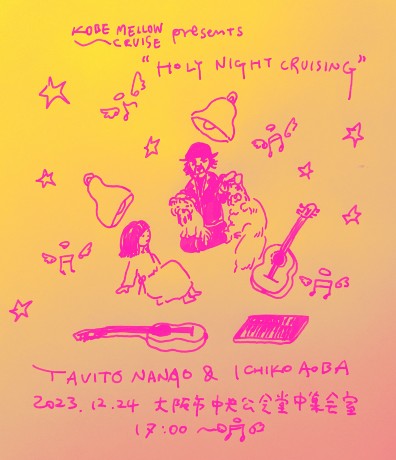 KOBE MELLOW
CRUISE presents
"HOLY NIGHT CRUISING"
TAVITO NANAO & ICHIKO AOBA
2023.12.24 大阪市中央公会堂中集会室
17:00～